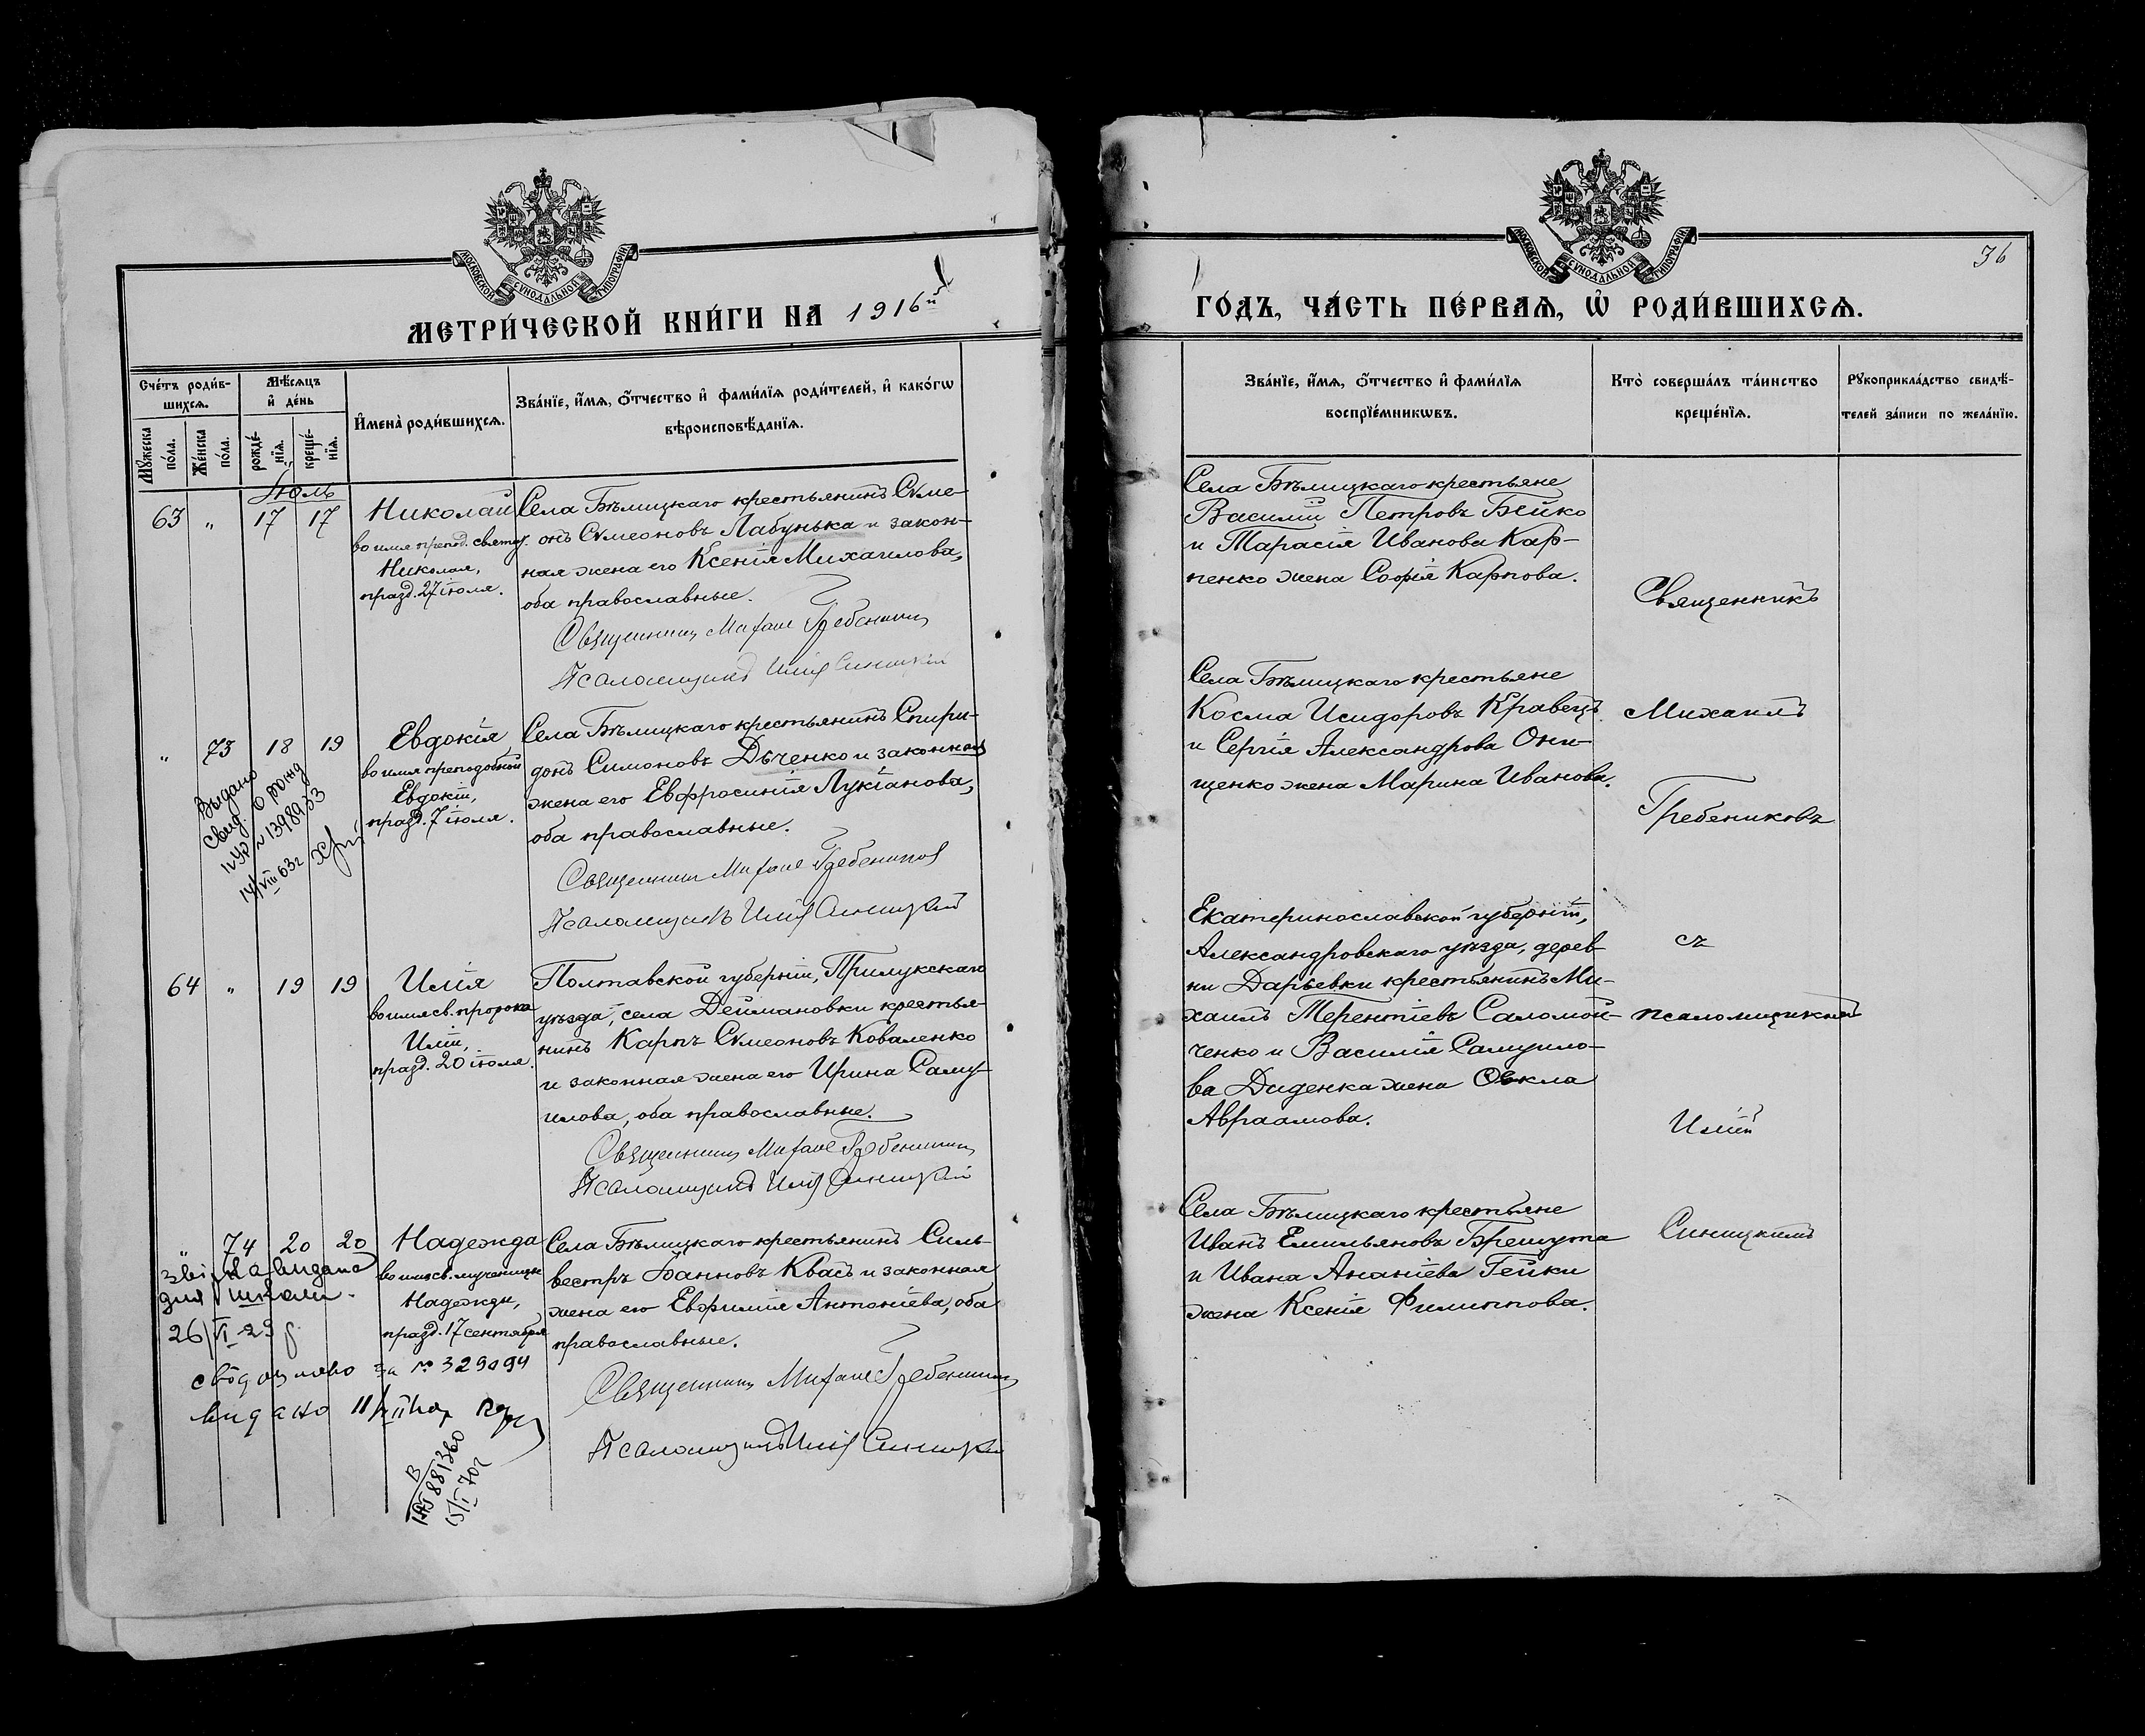 МОСКОВСКОЙ СѴНОДАЛЬНОЙ ТИПОГРАФІИ
МЕТРИ́ЧЕСКОЙ КНИ́ГИ НА 1916й
Сче́тъ роди́в-
шихсѧ.
Мѣ́сѧцъ
и҆ де́нь
Мꙋ́жеска
по́ла.
Же́нска
по́ла.
рожде́-
нїѧ.
креще́-
нїѧ.
И҆мена̀ роди́вшихсѧ.
Зва́нїе, и҆́мѧ, ѻ҆́тчество и҆ фами́лїѧ роди́телей, и҆ како́гѡ
вѣроисповѣ́данїѧ.
Іюль
63 " 17 17
Николай
во имя препод. святит.
Николая,
празд. 27 іюля.
Села Бѣлицкаго крестьянинъ Сѵме-
онъ Сѵмеоновъ Лабунька и закон-
ная жена его Ксенія Михаилова,
оба православные.
Священникъ Михаилъ Гребениковъ
Псаломщикъ Илія Синицкій
" 73 18 19
Евдокія
во имя преподобной
Евдокіи,
празд. 7 іюля.
Села Бѣлицкаго крестьянинъ Спири-
донъ Симоновъ Дѣченко и законная
жена его Евфросинія Лукіанова,
оба православные.
Священникъ Михаилъ Гребениковъ
Псаломщикъ Илія Синицкій
Выдано
свид. о рожд
14/VIII 63г
64 " 19 19
Илія
во имя св. пророка
Иліи,
празд. 20 іюля.
Полтавской губерніи, Прилукскаго
уѣзда, села Деймановки крестья-
нинъ Карпъ Сѵмеоновъ Коваленко
и законная жена его Ирина Саму-
илова, оба православные.
Священникъ Михаилъ Гребениковъ
Псаломщикъ Илія Синицкій
" 74 20 20
Надежда
во имя св. мученицы
Надежды,
празд. 17 сентября
Села Бѣлицкаго крестьянинъ Силь-
вестръ Іоанновъ Квасъ и законная
жена его Евфимія Антоніева, оба
православные.
Священникъ Михаилъ Гребениковъ
Псаломщикъ Илія Синицкій
видана
для школи.
26/VI-29 р
за № 329094
видано
881360
15/I 70г
МОСКОВСКОЙ СѴНОДАЛЬНОЙ ТИПОГРАФІИ
36
ГО́ДЪ, ЧА́СТЬ ПЕ́РВАѦ, Ѡ҆ РОДИ́ВШИХСѦ.
Зва́нїе, и҆́мѧ, ѻ҆́тчество и҆ фами́лїѧ
воспрїе́мникѡвъ.
Кто̀ соверша́лъ та́инство
креще́нїѧ.
Рꙋкоприкла́дство свидѣ́-
телей за́писи по жела́нїю.
Села Бѣлицкаго крестьяне
Василій Петровъ Бейко
и Тарасія Иванова Кар-
пенко жена Софія Карпова.
Села Бѣлицкаго крестьяне
Косма Исидоровъ Кравецъ
и Сергія Александрова Они-
щенко жена Марина Иванова.
Екатеринославской губерніи,
Александровскаго уѣзда, дерев-
ни Дарьевки крестьянинъ Ми-
хаилъ Терентіевъ Саломой-
ченко и Василія Самуило-
ва Диденка жена Ѳекла
Авраамова.
Села Бѣлицкаго крестьяне
Иванъ Емильяновъ Брешута
и Ивана Ананіева Гейки
жена Ксенія Филиппова.
Священникъ
Михаилъ
Гребениковъ
съ
псаломщикомъ
Иліей
Синицкимъ